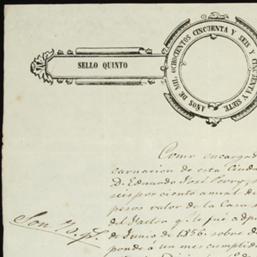 SELLO QUINTO
AÑOS DE MIL OCHOCIENTOS CINCUENTA Y SEIS Y CINCUENTA Y SIETE
Como encargad
carnacion de esta Ciuda
D. Eduardo José Perry
seis por ciento anual d
pesos valor de la Casa
del Teatro q. le fué adju
de Junio de 1856. sobre d
ponde á un mes cumplid
Son